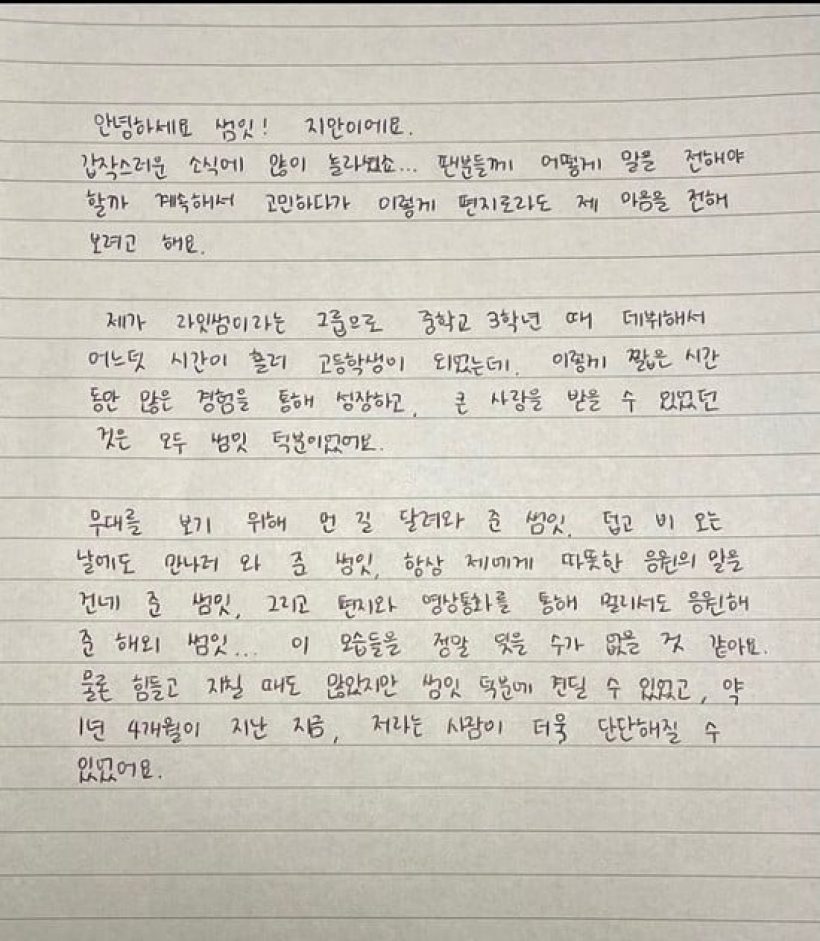 안녕하세요 썸잇! 지안이에요.
갑작스러운 소식에 많이 놀라셨죠... 팬분들께 어떻게 말을 전해야
할까 계속해서 고민하다가 이렇게 편지로라도 제 마음을 전해
보려고 해요.
제가 라잇썸이라는 그룹으로 중학교 3학년 때 데뷔해서
어느덧 시간이 흘러 고등학생이 되었는데, 이렇게 짧은 시간
동안 많은 경험을 통해 성장하고, 큰 사랑을 받을 수 있었던
것은 모두 썸잇 덕분이었어요.
무대를 보기 위해 먼 길 달려와 준 썸잇, 덥고 비 오는
날에도 만나러 와 준 썸잇, 항상 저에게 따뜻한 응원의 말을
건네 준 썸잇, 그리고 편지와 영상통화를 통해 멀리서도 응원해
준 해외 썸잇... 이 모습들을 정말 잊을 수가 없을 것 같아요.
물론 힘들고 지칠 때도 많았지만 썸잇 덕분에 견딜 수 있었고, 약
1년 4개월이 지난 지금, 저라는 사람이 더욱 단단해질 수
있었어요.